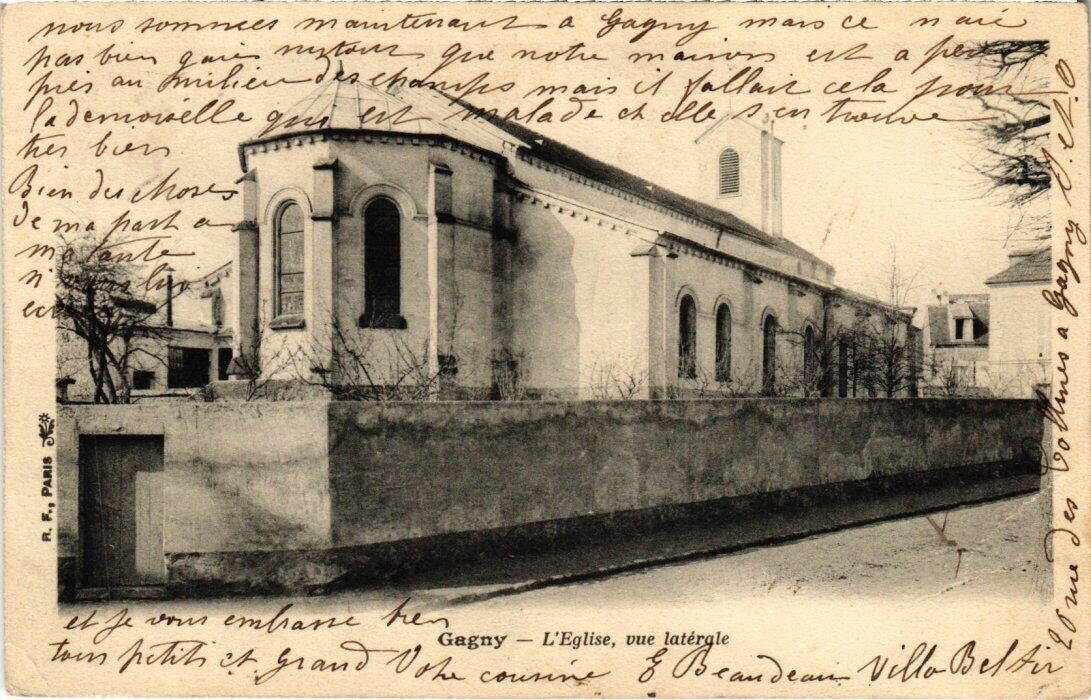 nous sommes maintenant a Gagny mais ce n'aie
pas bien gaie surtout que notre maison est a peu
près au milieu des champs mais il fallait cela pour
la demoiselle qui est malade et elle s'en trouve
très bien
Bien des choses
de ma part a
ma tante
R. F., PARIS
et je vous embrasse bien
Gagny — L'Eglise, vue latérale
tous petits et Grand Votre cousine E Beaudeau Villa Bel Air
20 rue des Collines a Gagny S. et O